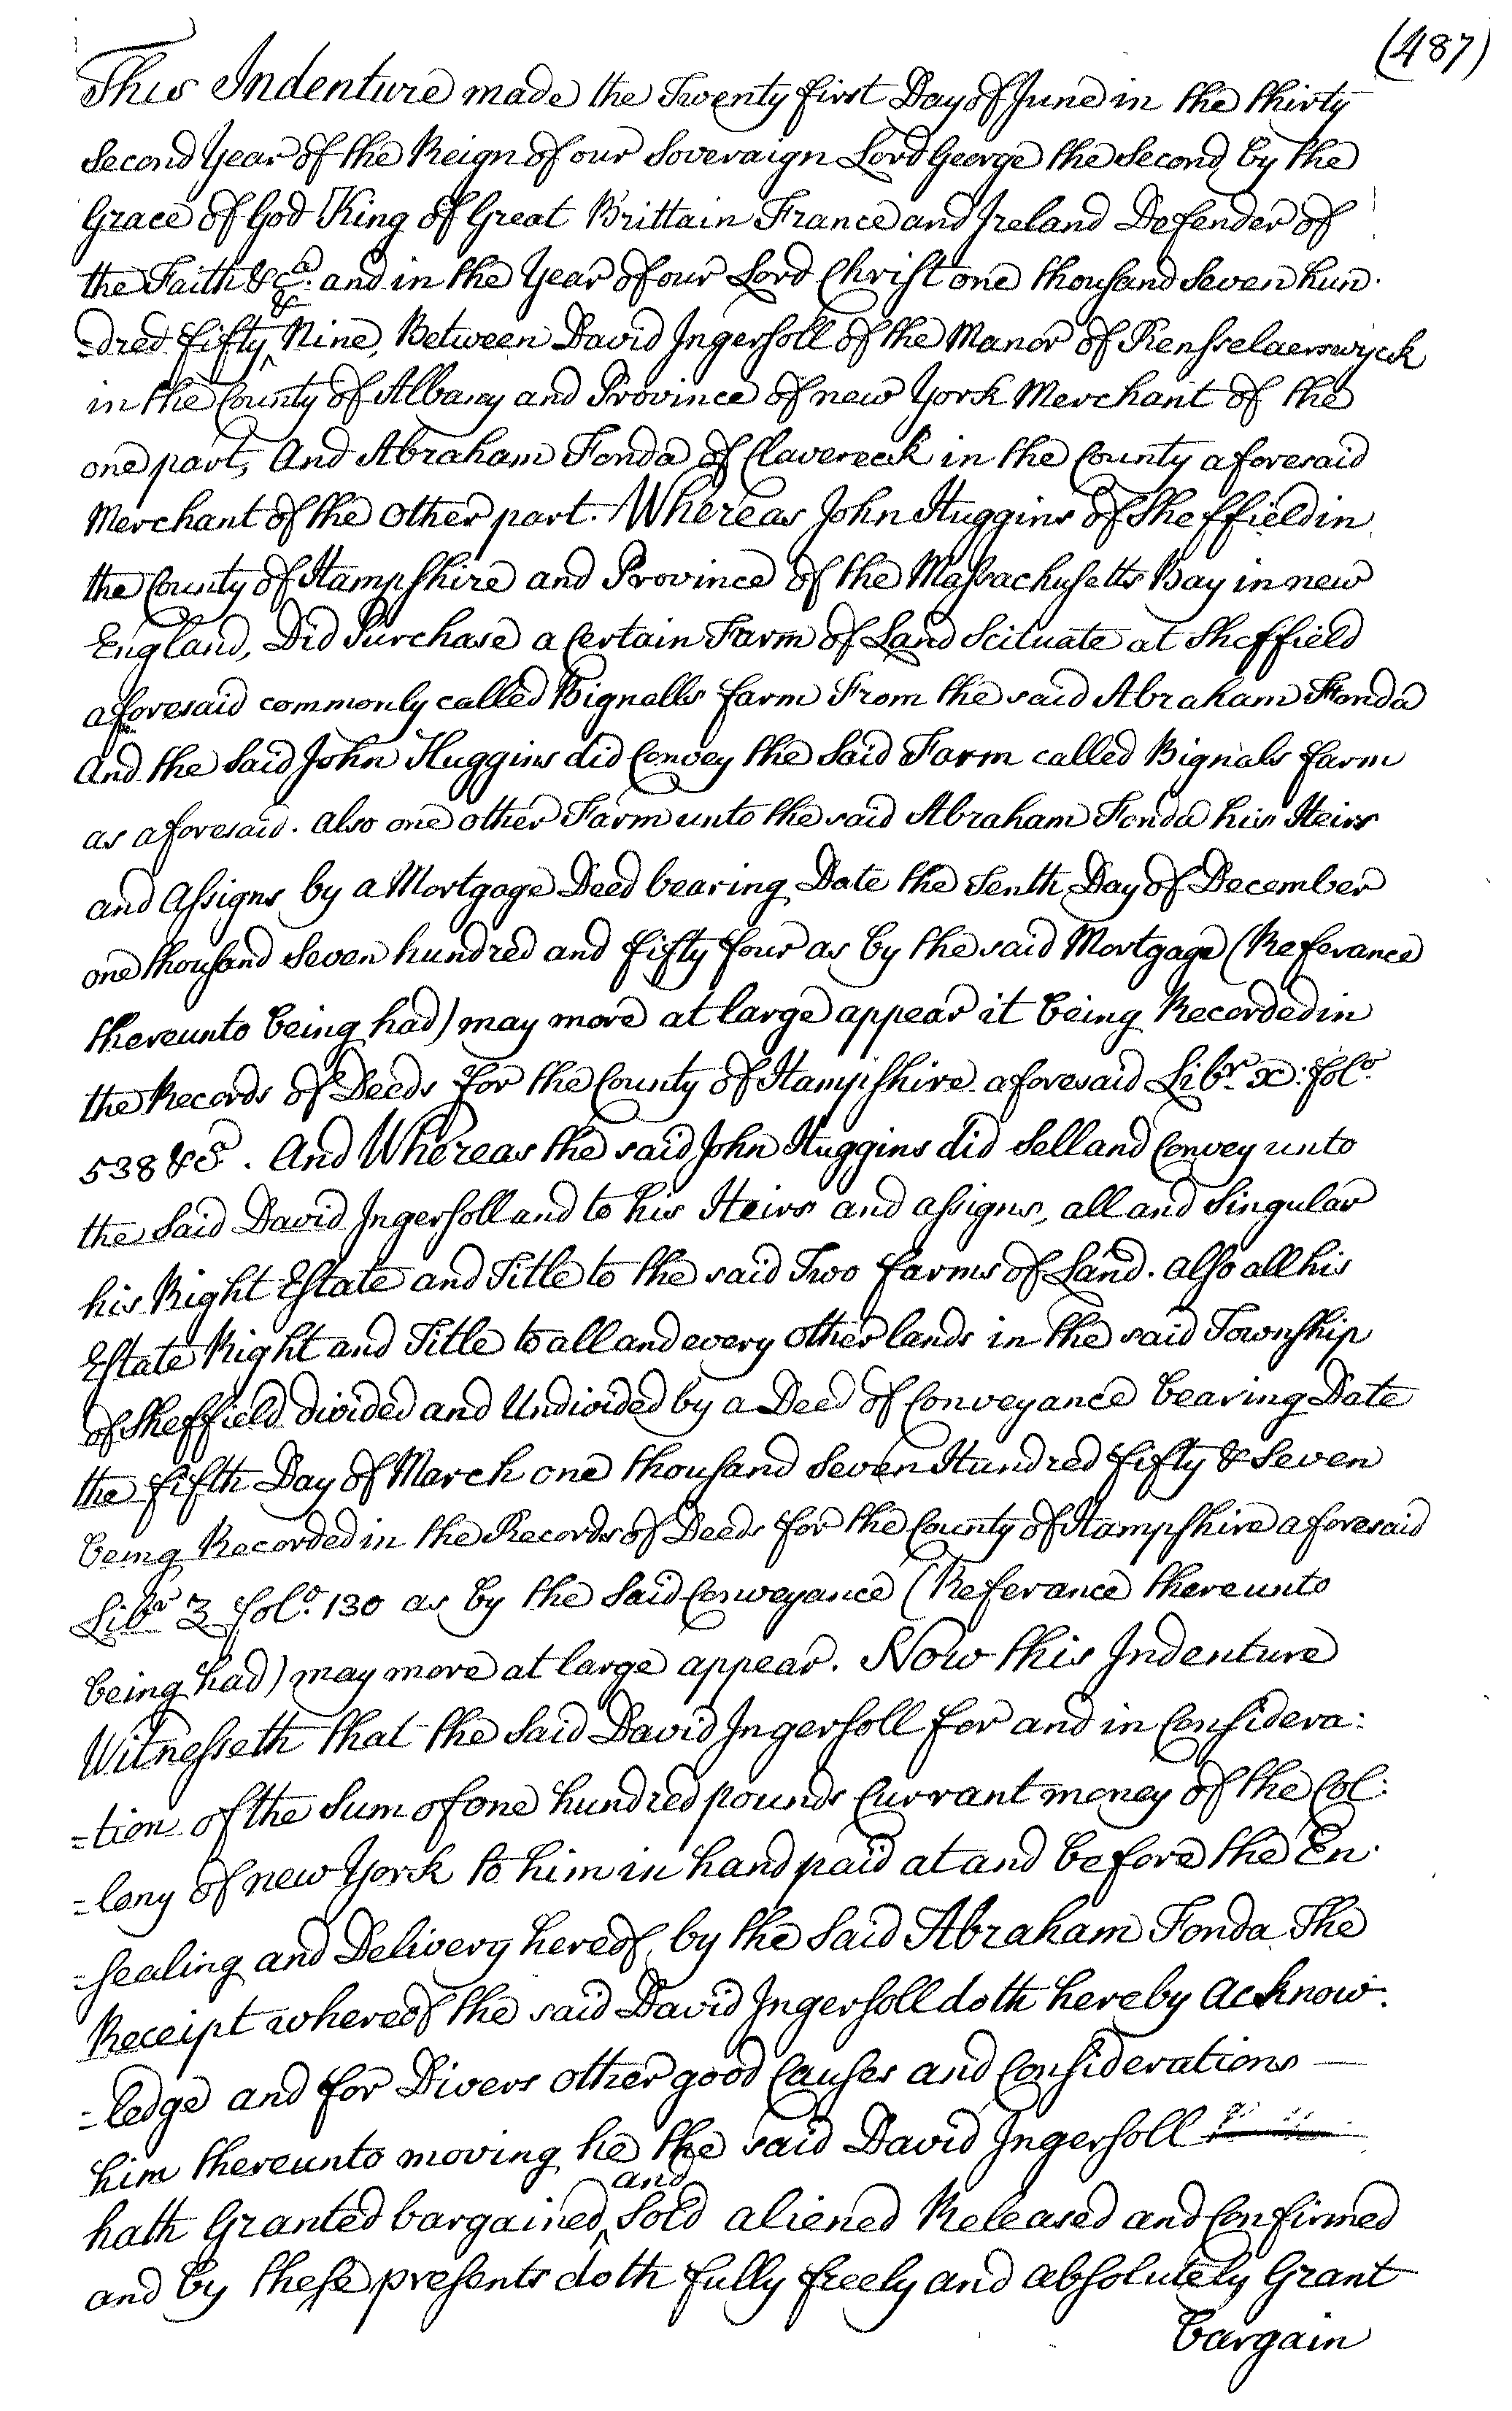 (487)
This Indenture made the Twenty first Day of June in the thirty
Second Year of the Reign of our Soveraign Lord George the Second by the
Grace of God King of Great Brittain France and Ireland Defender of
the Faith &ca. and in the Year of our Lord Christ one thousand Seven hun-
-dred fifty & Nine, Between David Ingersoll of the Manor of Rensselaerswyck
in the County of Albany and Province of new York Merchant of the
one part, And Abraham Fonda of Clavereck in the County aforesaid
Merchant of the Other part. Whereas John Huggins of Sheffield in
the County of Hampshire and Province of the Massachusetts Bay in new
England, Did Purchase a Certain Farm of Land Scituate at Sheffield
aforesaid commonly called Bignalls farm From the said Abraham Fonda
And the Said John Huggins did Convey the Said Farm called Bignals farm
as aforesaid. also one other Farm unto the said Abraham Fonda his Heirs
and Assigns by a Mortgage Deed bearing Date the Tenth Day of December
one thousand Seven hundred and fifty four as by the said Mortgage (Referance
thereunto being had) may more at large appear it being Recorded in
the Records of Deeds for the County of Hampshire aforesaid Libr. X: folo.
538 &c. And Whereas the said John Huggins did Sell and Convey unto
the Said David Ingersoll and to his Heirs and assigns, all and Singular
his Right Estate and Title to the said Two farms of Land. also all his
Estate Right and Title to all and every Other lands in the said Township
of Sheffield divided and Undivided by a Deed of Conveyance bearing Date
the fifth Day of March one thousand Seven Hundred fifty & Seven
being Recorded in the Records of Deeds for the County of Hampshire aforesaid
Libr. Z folo. 130 as by the Said Conveyance (Referance thereunto
being had) may more at large appear. Now this Indenture
Witnesseth that the Said David Ingersoll for and in Considera:
-tion of the Sum of one hundred pounds Currant money of the Col:
-lony of new York to him in hand paid at and before the En-
-sealing and Delivery hereof by the Said Abraham Fonda The
Receipt whereof the said David Ingersoll doth hereby Acknow-
-ledge and for Divers other good Causes and Considerations
him thereunto moving he the said David Ingersoll
hath Granted bargained and Sold aliened Released and Confirmed
and by these presents doth fully freely and absolutely Grant
bargain